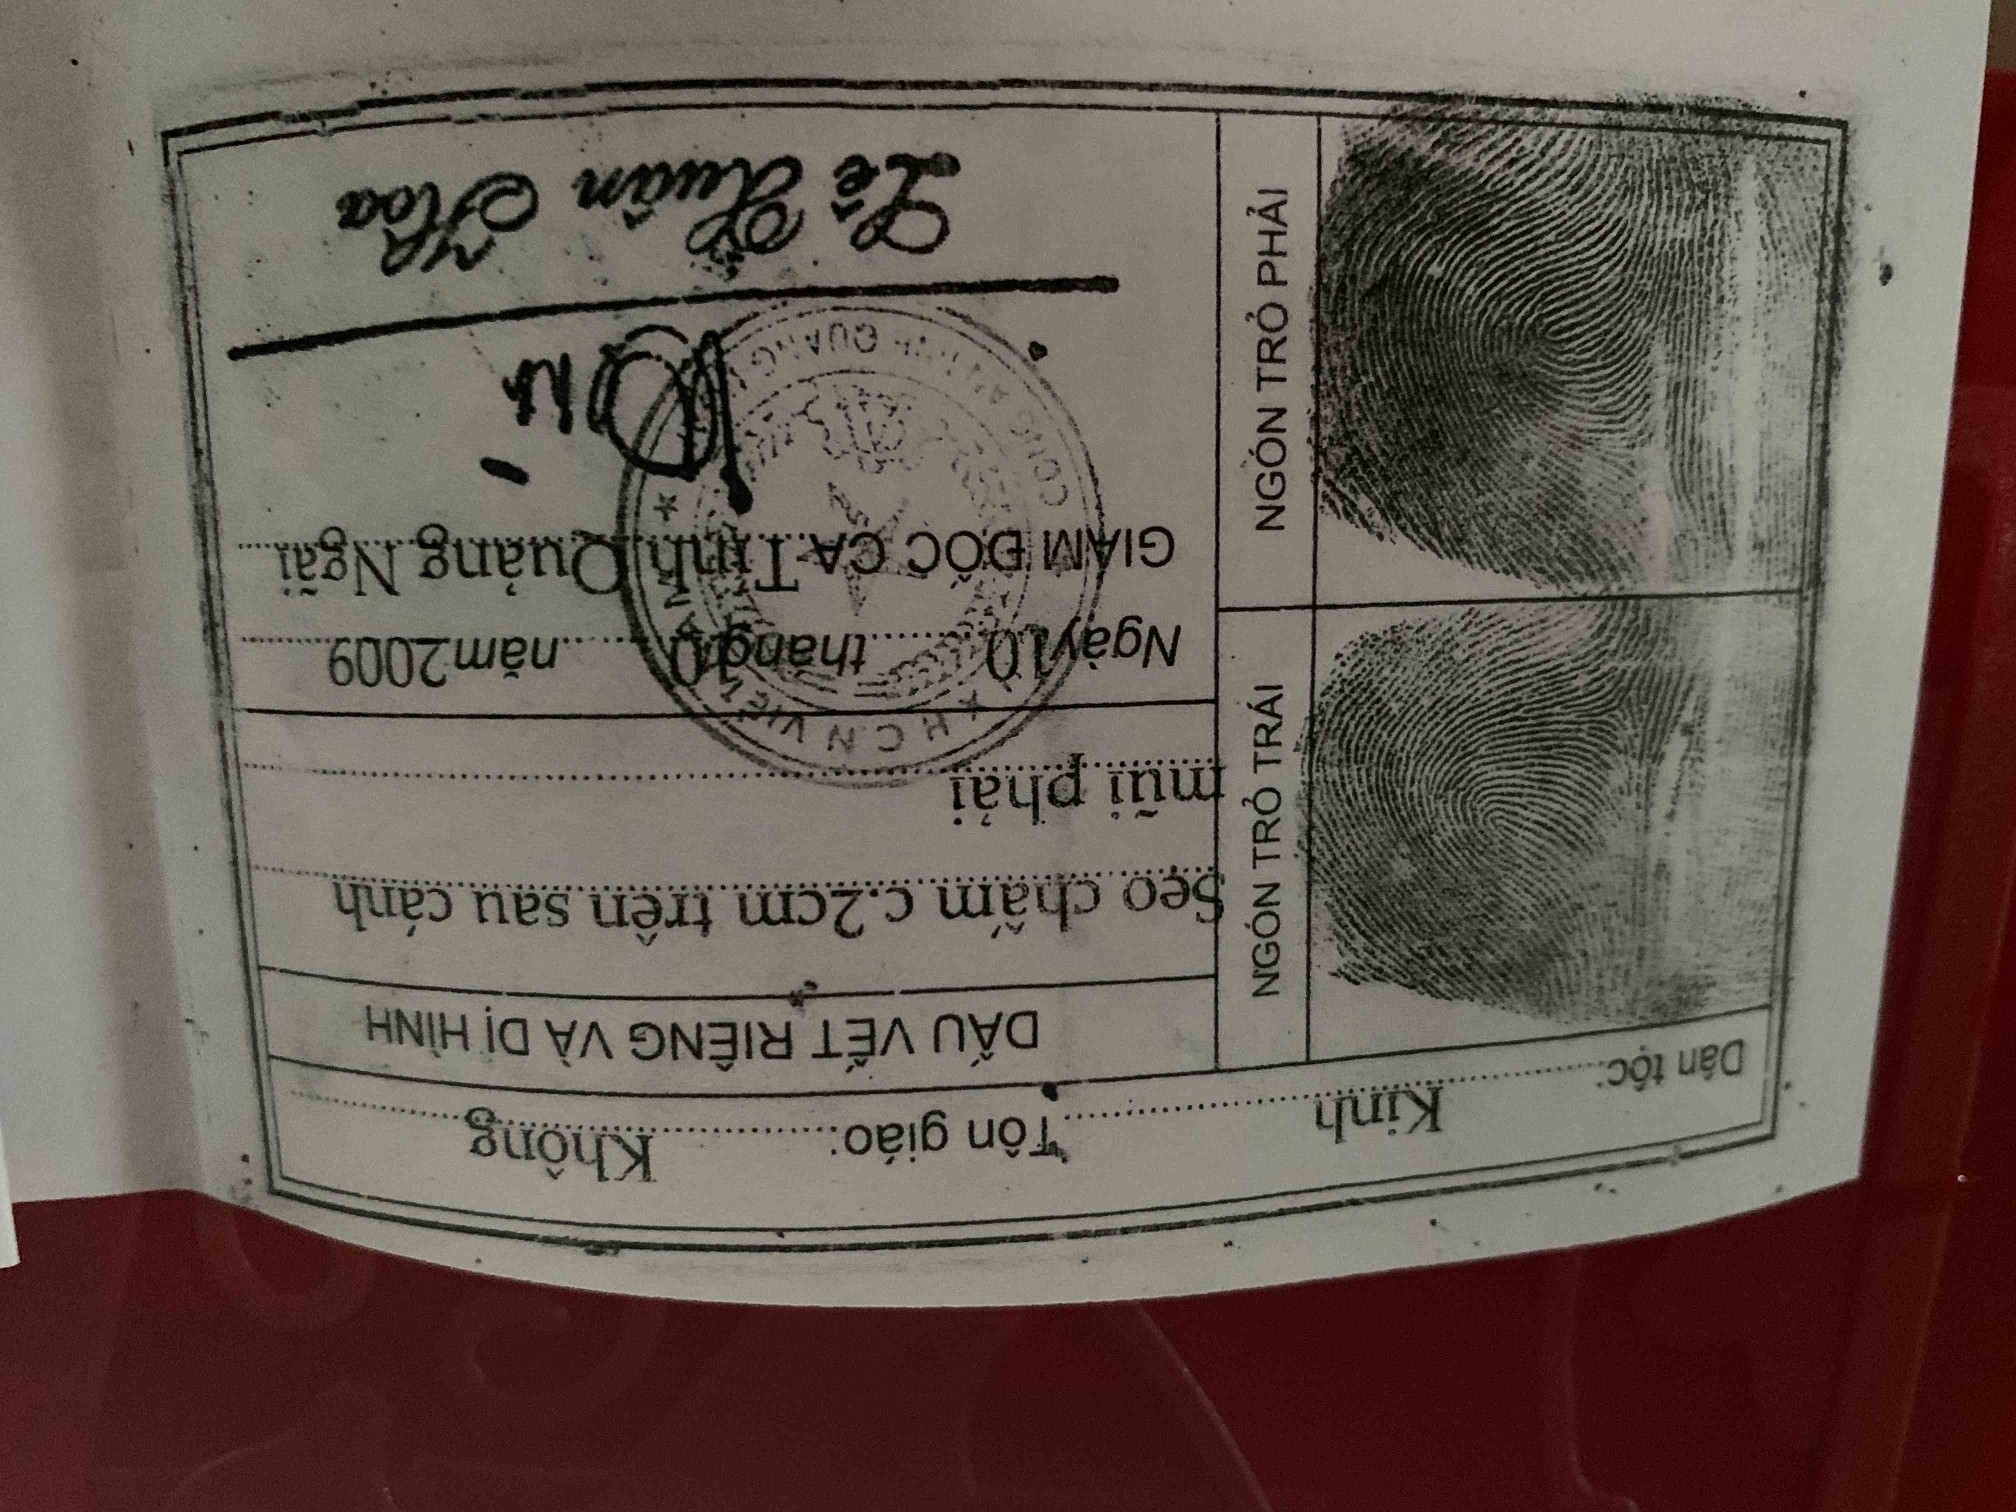 Dân tộc: Kinh Tôn giáo: Không
NGÓN TRỎ TRÁI
NGÓN TRỎ PHẢI
DẤU VẾT RIÊNG VÀ DỊ HÌNH
Sẹo chấm c.2cm trên sau cánh
mũi phải
Ngày 10 tháng 10 năm 2009
GIÁM ĐỐC CA Tỉnh Quảng Ngãi
X.H.C.N VIỆT NAM
CÔNG AN TỈNH QUẢNG
Lê Xuân Hòa